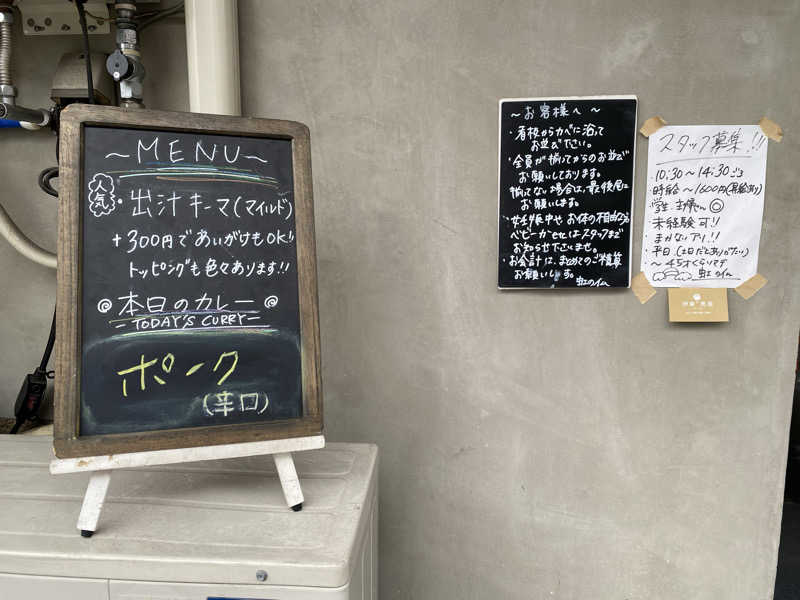 ~MENU~
人気
・出汁キーマ(マイルド)
+300円であいがけもOK!!
トッピングも色々あります!!
本日のカレー
-TODAY'S CURRY-
ポーク
(辛口)
~お客様へ~
・看板からカベに沿って
お並び下さい。
・全員が揃ってからのお並びで
お願いしております。
揃ってない場合は、最後尾に
お願いします。
・妊娠中や、お体の不自由な方
ベビーカーetc.はスタッフまで
お知らせ下さいませ。
・お会計は、まとめてのご精算
お願いします。
虹の仏
スタッフ募集!!
・10:30~14:30ごろ
時給~1600円(昇給あり)
・学生、主婦さん◎
・未経験可!!
・まかないアリ!!
・平日(土日だとありがたい)
・~45才くらいまで
虹の仏